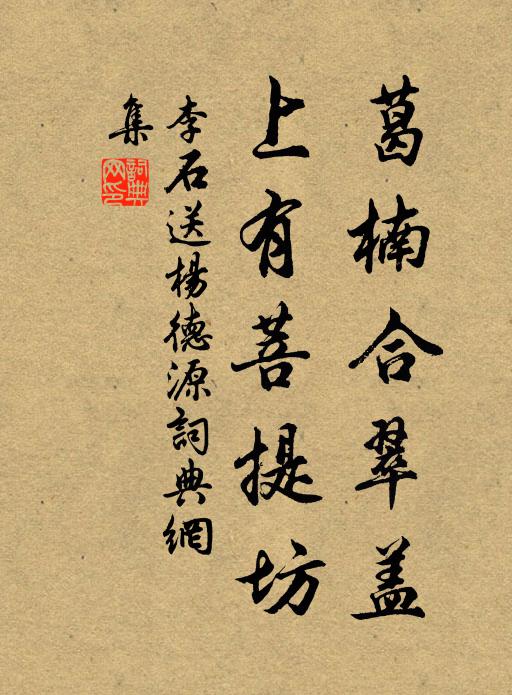 葛楠合翠盖
上有菩提坊
李石送楊德源詞典網
集
詞典
网印